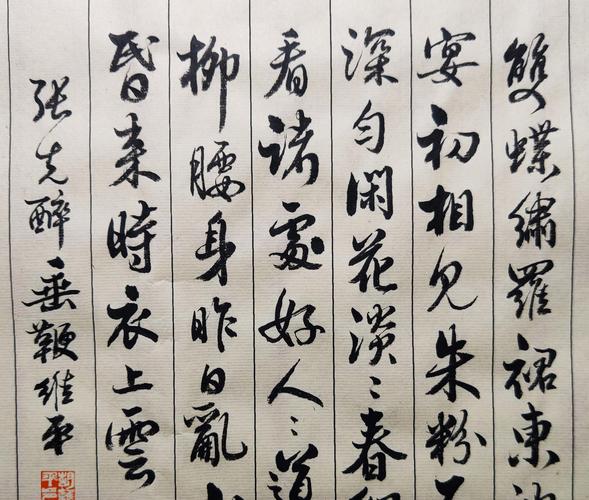 雙蝶繡羅裙東
宴初相見朱粉
深勻閑花淡〻春
看諸處好人〻道
柳腰身昨日亂
昏来時衣上雲
张先醉垂鞭维平